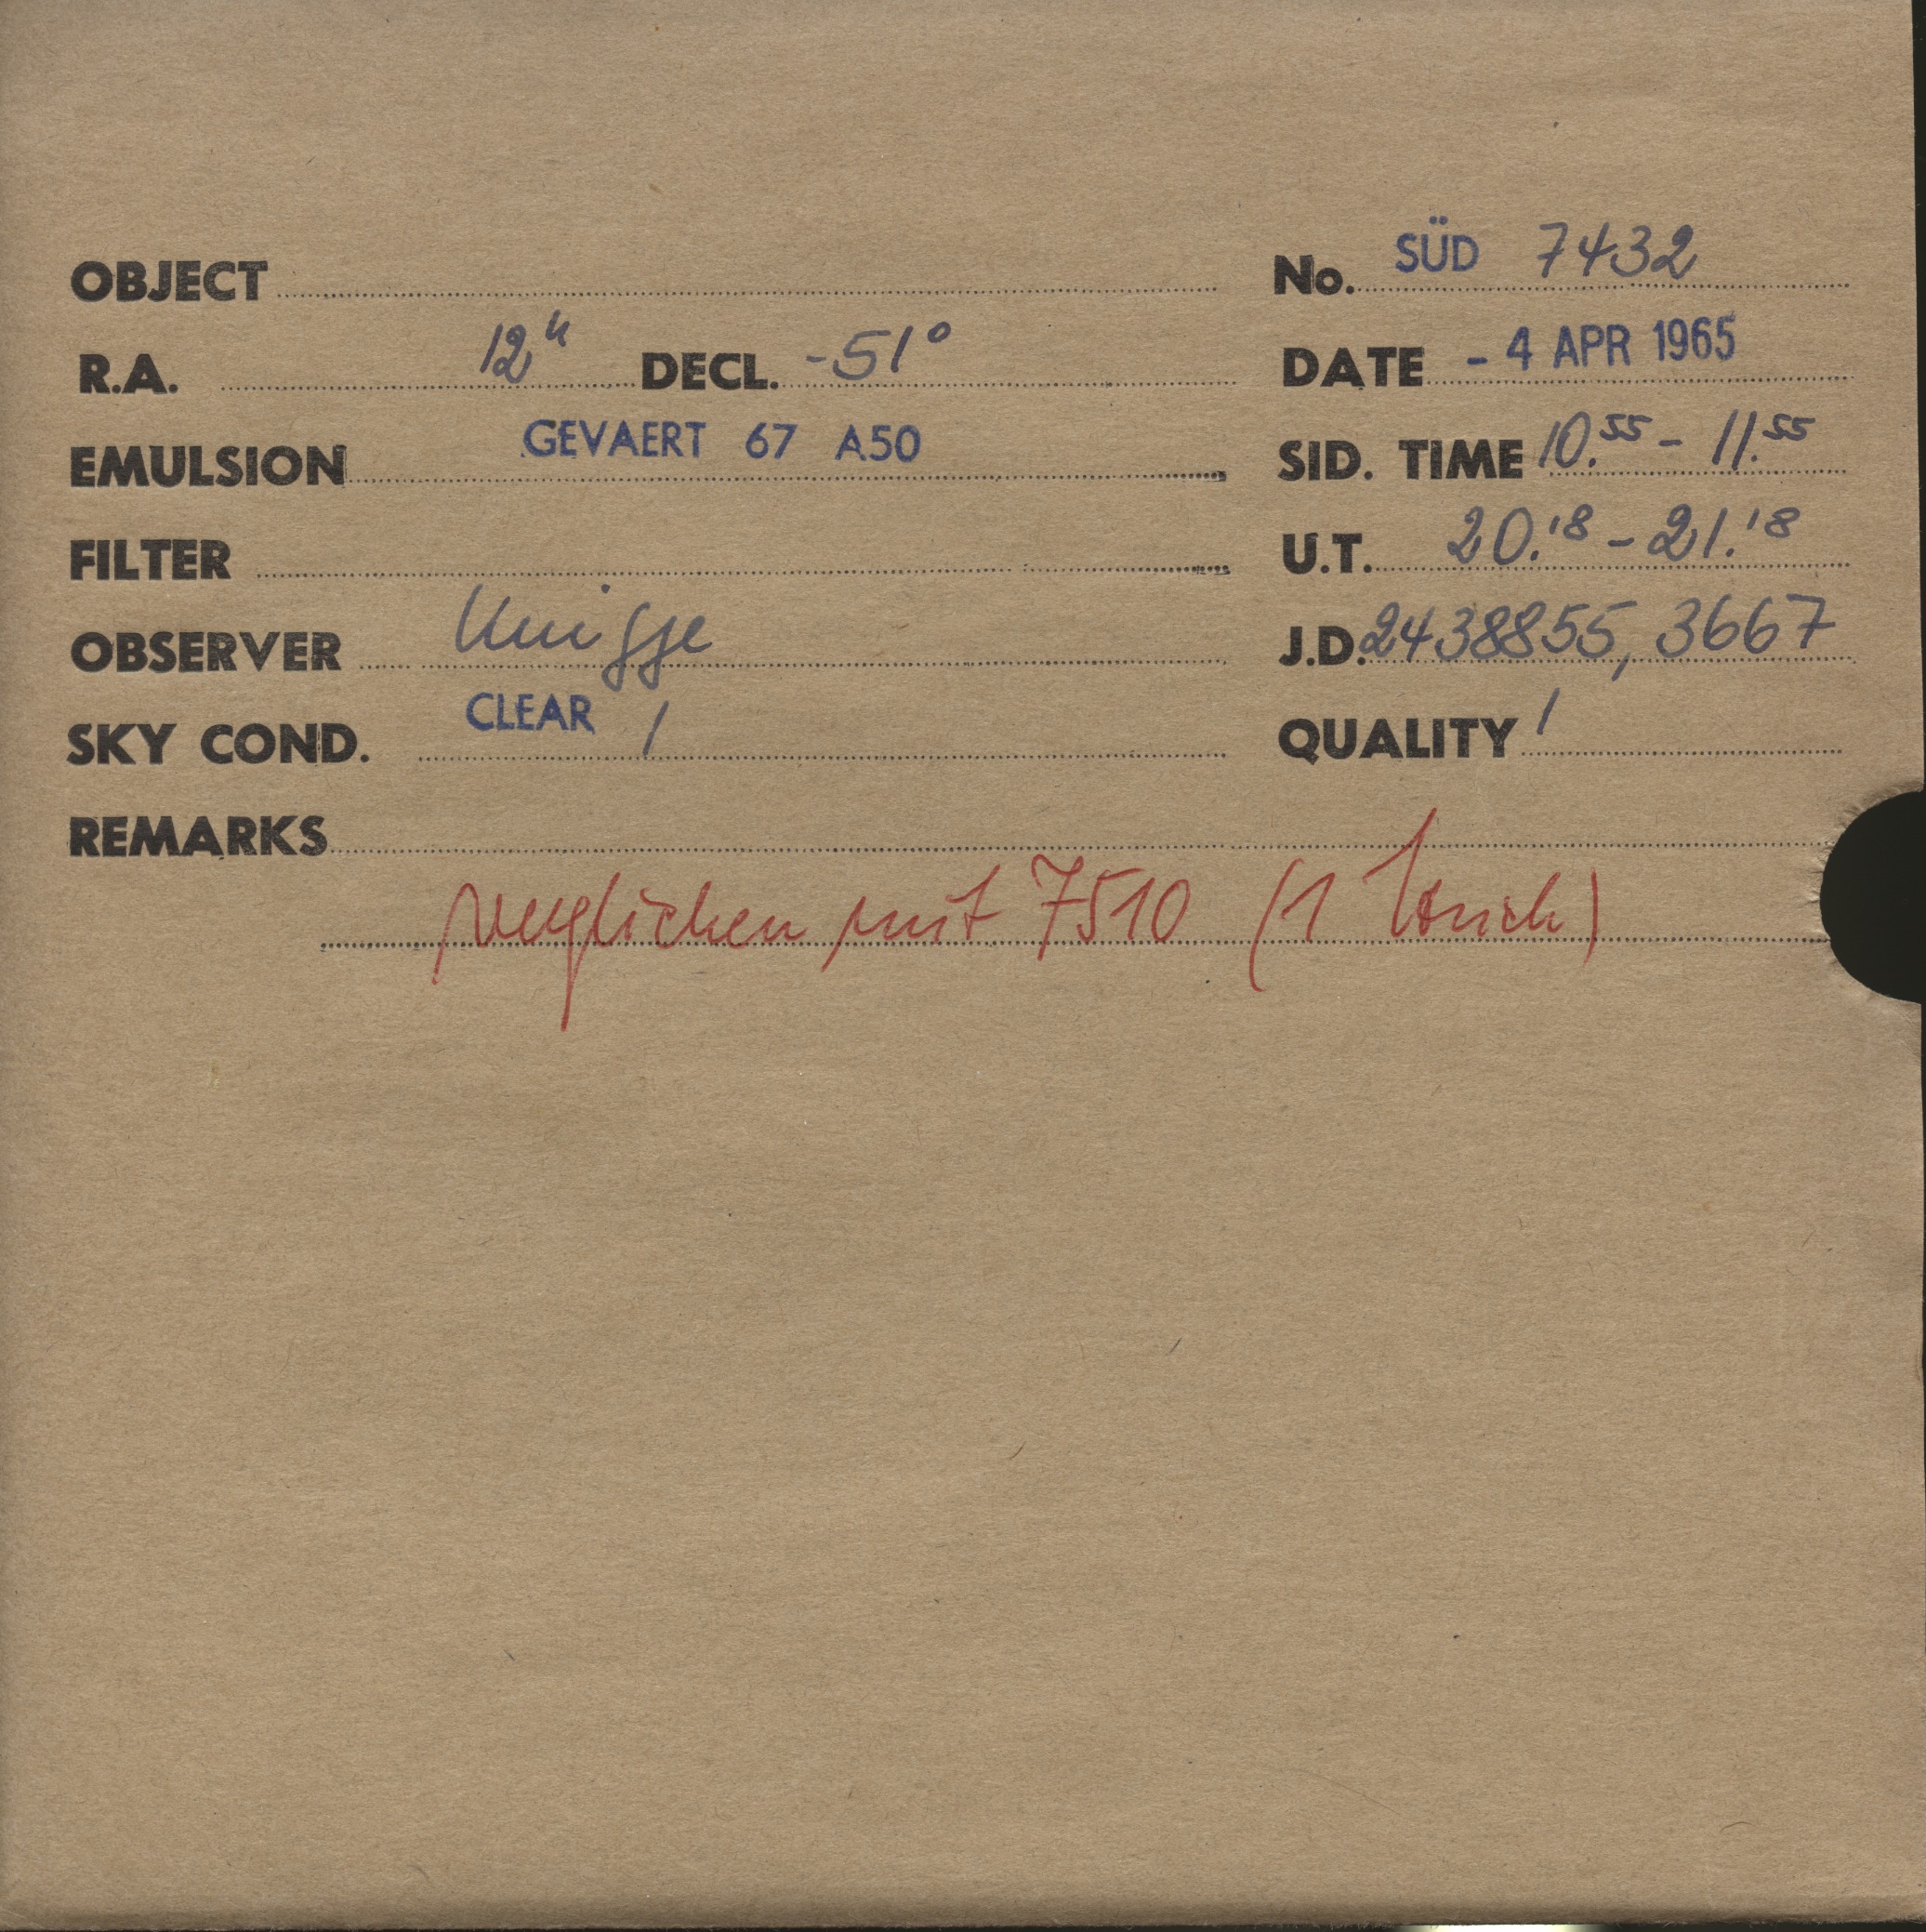 OBJECT
No. SÜD 7432
R.A. 12h DECL. -51°
DATE - 4 APR 1965
EMULSION GEVAERT 67 A50
SID. TIME 10.55 - 11.55
FILTER
U.T. 20.18 - 21.18
OBSERVER Knigge
J.D. 2438855,3667
SKY COND. CLEAR 1
QUALITY 1
REMARKS
verglichen mit 7510 (1